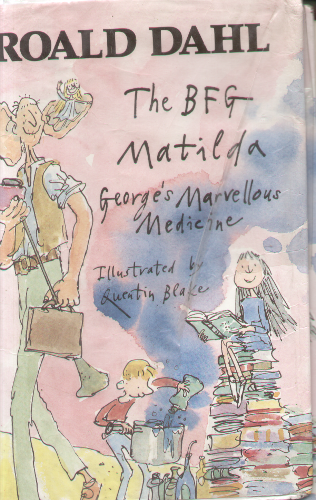 ROALD DAHL
The BFG
Matilda
George's Marvellous
Medicine
Illustrated by
Quentin Blake